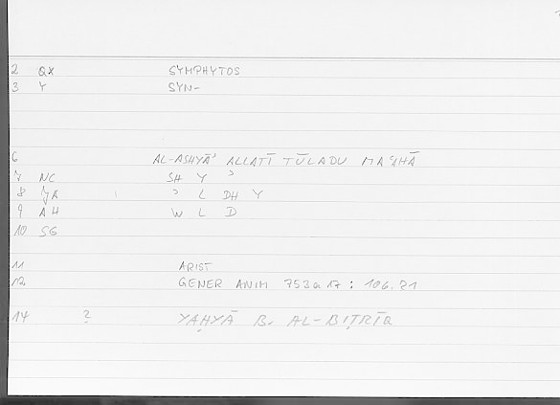 2 QX SYMPHYTOS
3 Y SYN-
6 AL-ASHYĀʾ ALLATĪ TŪLADU MAʿAHĀ
7 NC SH Y ʾ
8 JA ʾ L DH Y
9 AH W L D
10 SG
11 ARIST
12 GENER ANIM 753a17 : 106.21
14 ? YAḤYĀ B. AL-BIṬRĪQ